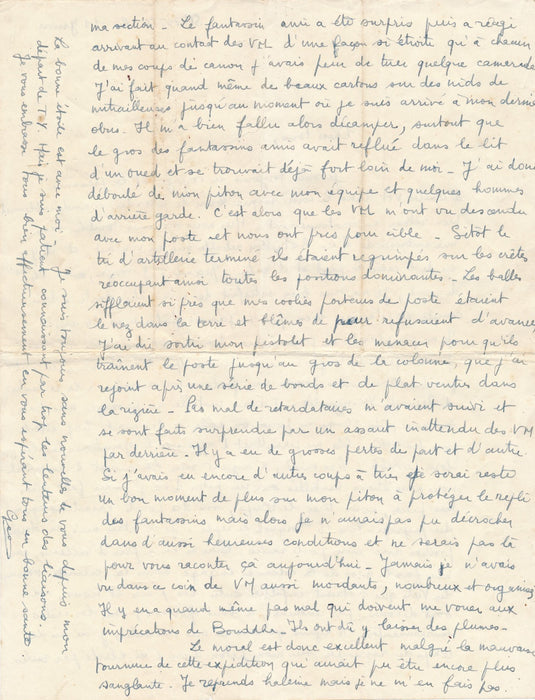 ma section - Le fantassin ami a été surpris puis a réagi
arrivant au contact des VM d'une façon si étroite qu'à chacun
de mes coups de canon j'avais peur de tuer quelque camarade
J'ai fait quand même de beaux cartons sur des nids de
mitrailleuses jusqu'au moment où je suis arrivé à mon dernier
obus. Il m'a bien fallu alors décamper, surtout que
le gros des fantassins amis avait reflué dans le lit
d'un oued et se trouvait déjà fort loin de moi - J'ai donc
déboulé de mon piton avec mon équipe et quelques hommes
d'arrière garde. C'est alors que les VM m'ont vu descendre
avec mon poste et nous ont pris pour cible - Sitôt le
tir d'artillerie terminé ils étaient regrimpés sur les crêtes
réoccupant ainsi toutes les positions dominantes - Les balles
sifflaient si près que mes coolies porteurs de poste étaient
le nez dans la terre et blêmes de peur refusaient d'avancer
J'ai dû sortir mon pistolet et les menacer pour qu'ils
traînent le poste jusqu'au gros de la colonne, que j'ai
rejoint après une série de bonds et de plat ventres dans
la rizière - Pas mal de retardataires m'avaient suivi et
se sont faits surprendre par un assaut inattendu des VM
par derrière - Il y a eu de grosses pertes de part et d'autre
Si j'avais eu encore d'autres coups à tirer je serai resté
un bon moment de plus sur mon piton à protéger le repli
des fantassins mais alors je n'aurais pas pu décrocher
dans d'aussi heureuses conditions et ne serais pas là
pour vous raconter ça aujourd'hui - Jamais je n'avais
vu dans ce coin de VM aussi mordants, nombreux et organisés
Il y en a quand même pas mal qui doivent me vouer aux
imprécations de Bouddha - Ils ont dû y laisser des plumes -
Le moral est donc excellent malgré la mauvaise
tournure de cette expédition qui aurait pu être encore plus
sanglante. Je reprends haleine mais je ne m'en fais pas.
La bonne étoile est avec moi. Je suis toujours sans nouvelles de vous depuis mon
départ de T.Y. Mais je suis patient connaissant par trop les lenteurs des liaisons.
Je vous embrasse tous bien affectueusement en vous espérant tous en bonne santé.
Geo